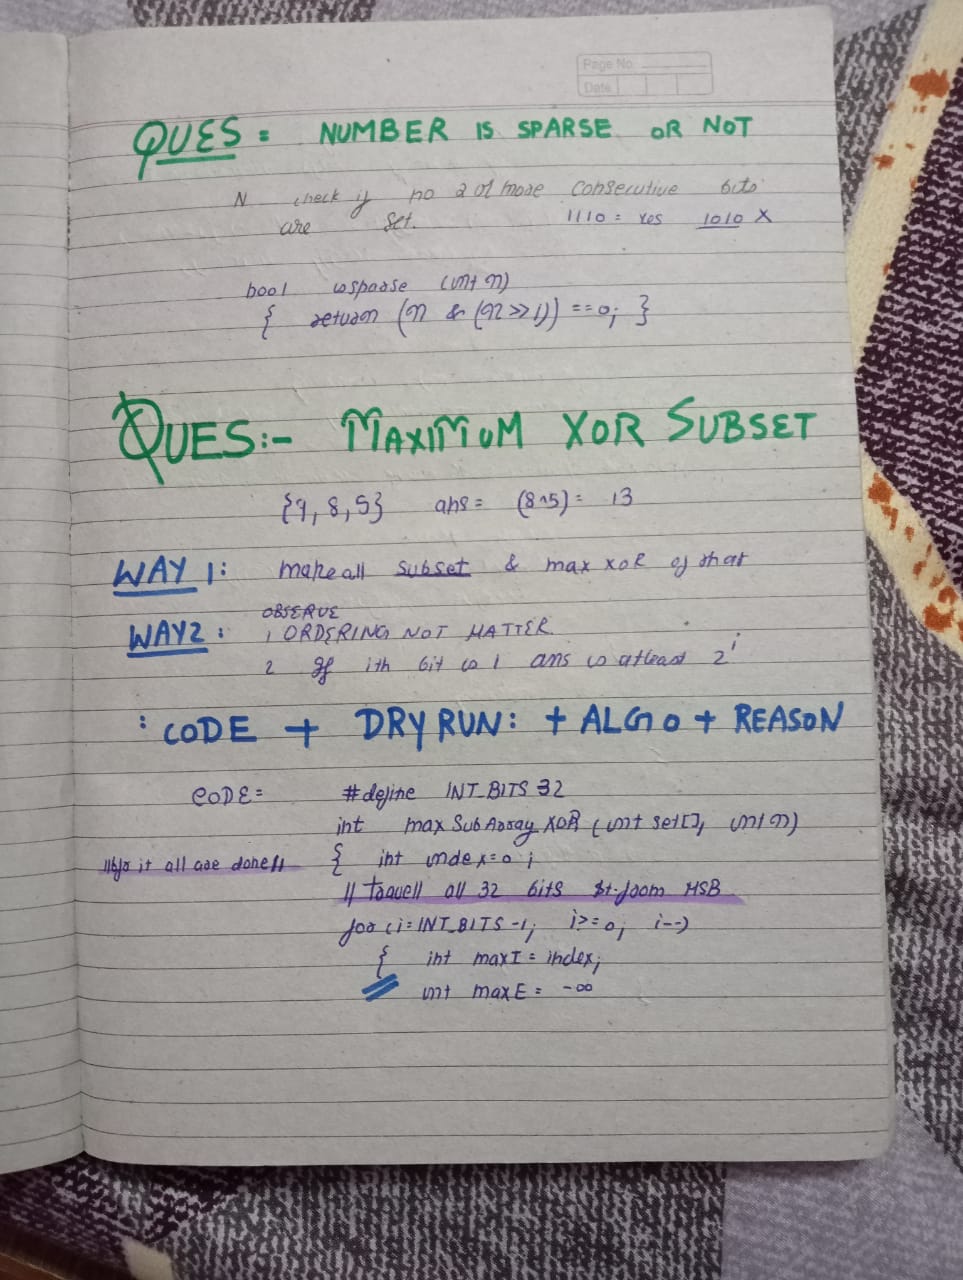 Page No.
Date
QUES = NUMBER IS SPARSE OR NOT
N check if no 2 or more consecutive bits
are set. 1110 = Yes 1010 X
bool issparse (int n)
{ return (n & (n>>1)) ==0; }
QUES:- MAXIMUM XOR SUBSET
{9, 8, 5} ans = (8^5) = 13
WAY 1: make all subset & max XOR of that
OBSERVE
WAY2: 1 ORDERING NOT MATTER.
2 If ith bit is 1 ans is atleast 2^i
: CODE + DRY RUN: + ALGO + REASON
CODE = #define INT_BITS 32
int maxSubArrayXOR (int set[], int n)
{ int index=0;
//b/o it all are done//
// Travell all 32 bits st. from MSB
for (i=INT_BITS-1; i>=0; i--)
{ int maxI = index;
int maxE = -∞